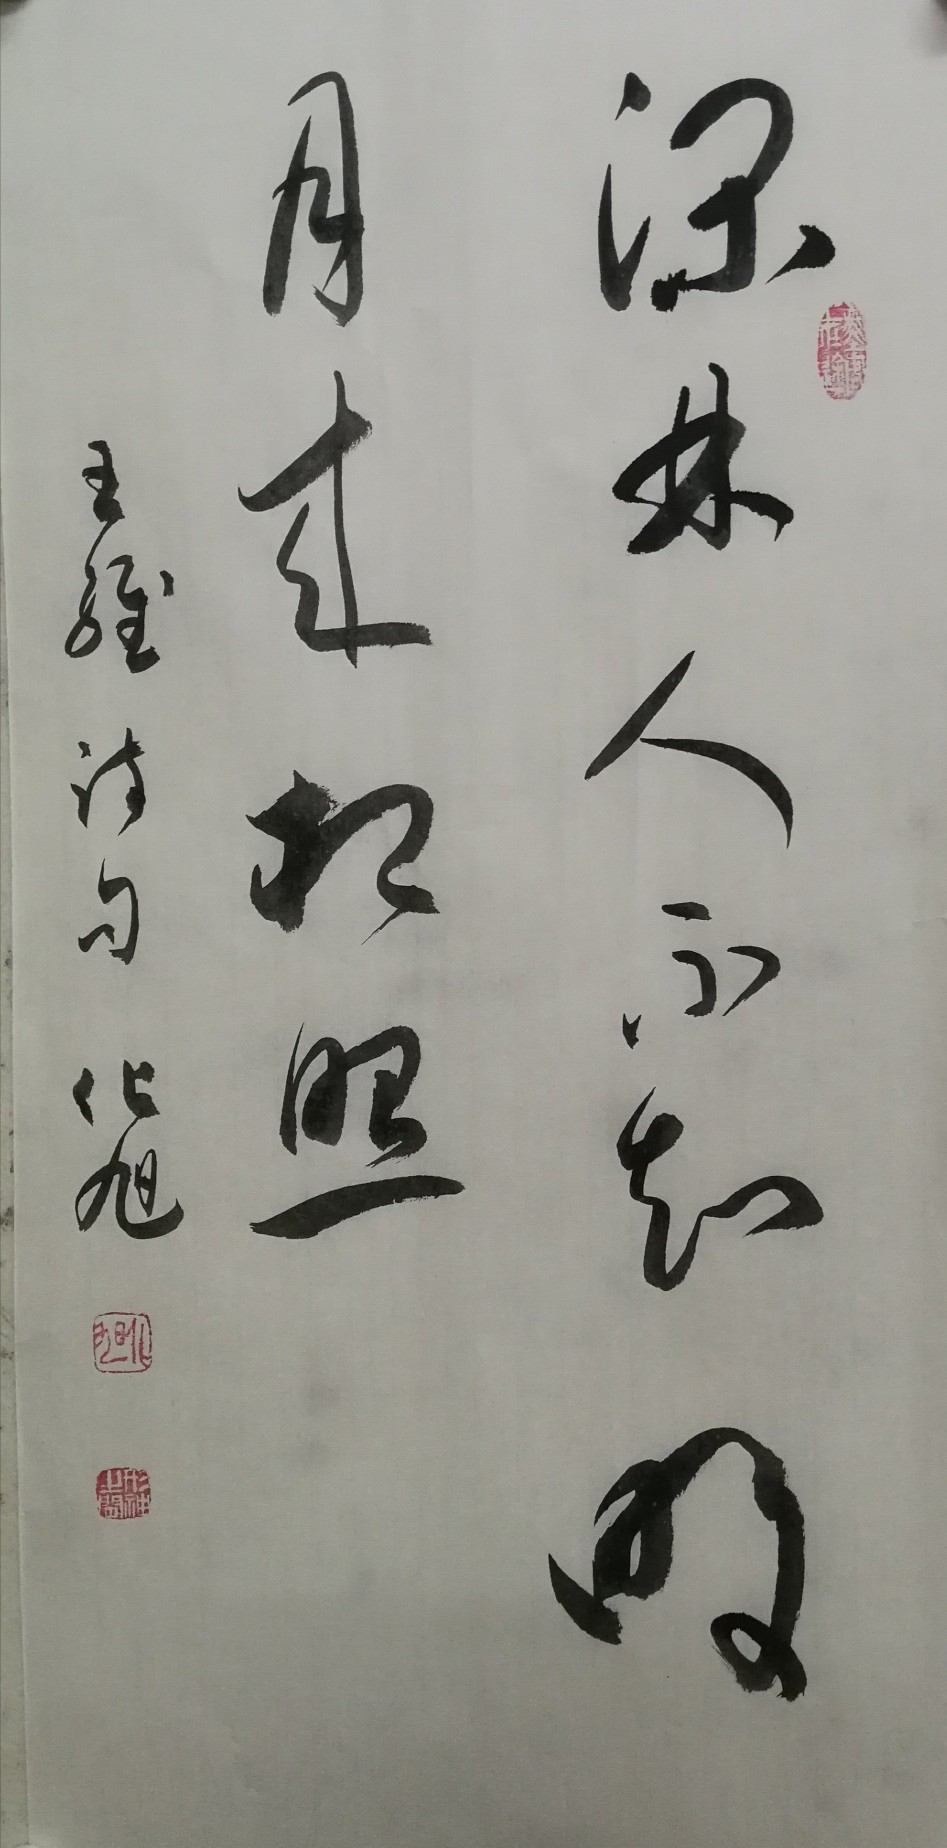 深林人不知明
月来相照
王维诗句 化旭
化旭